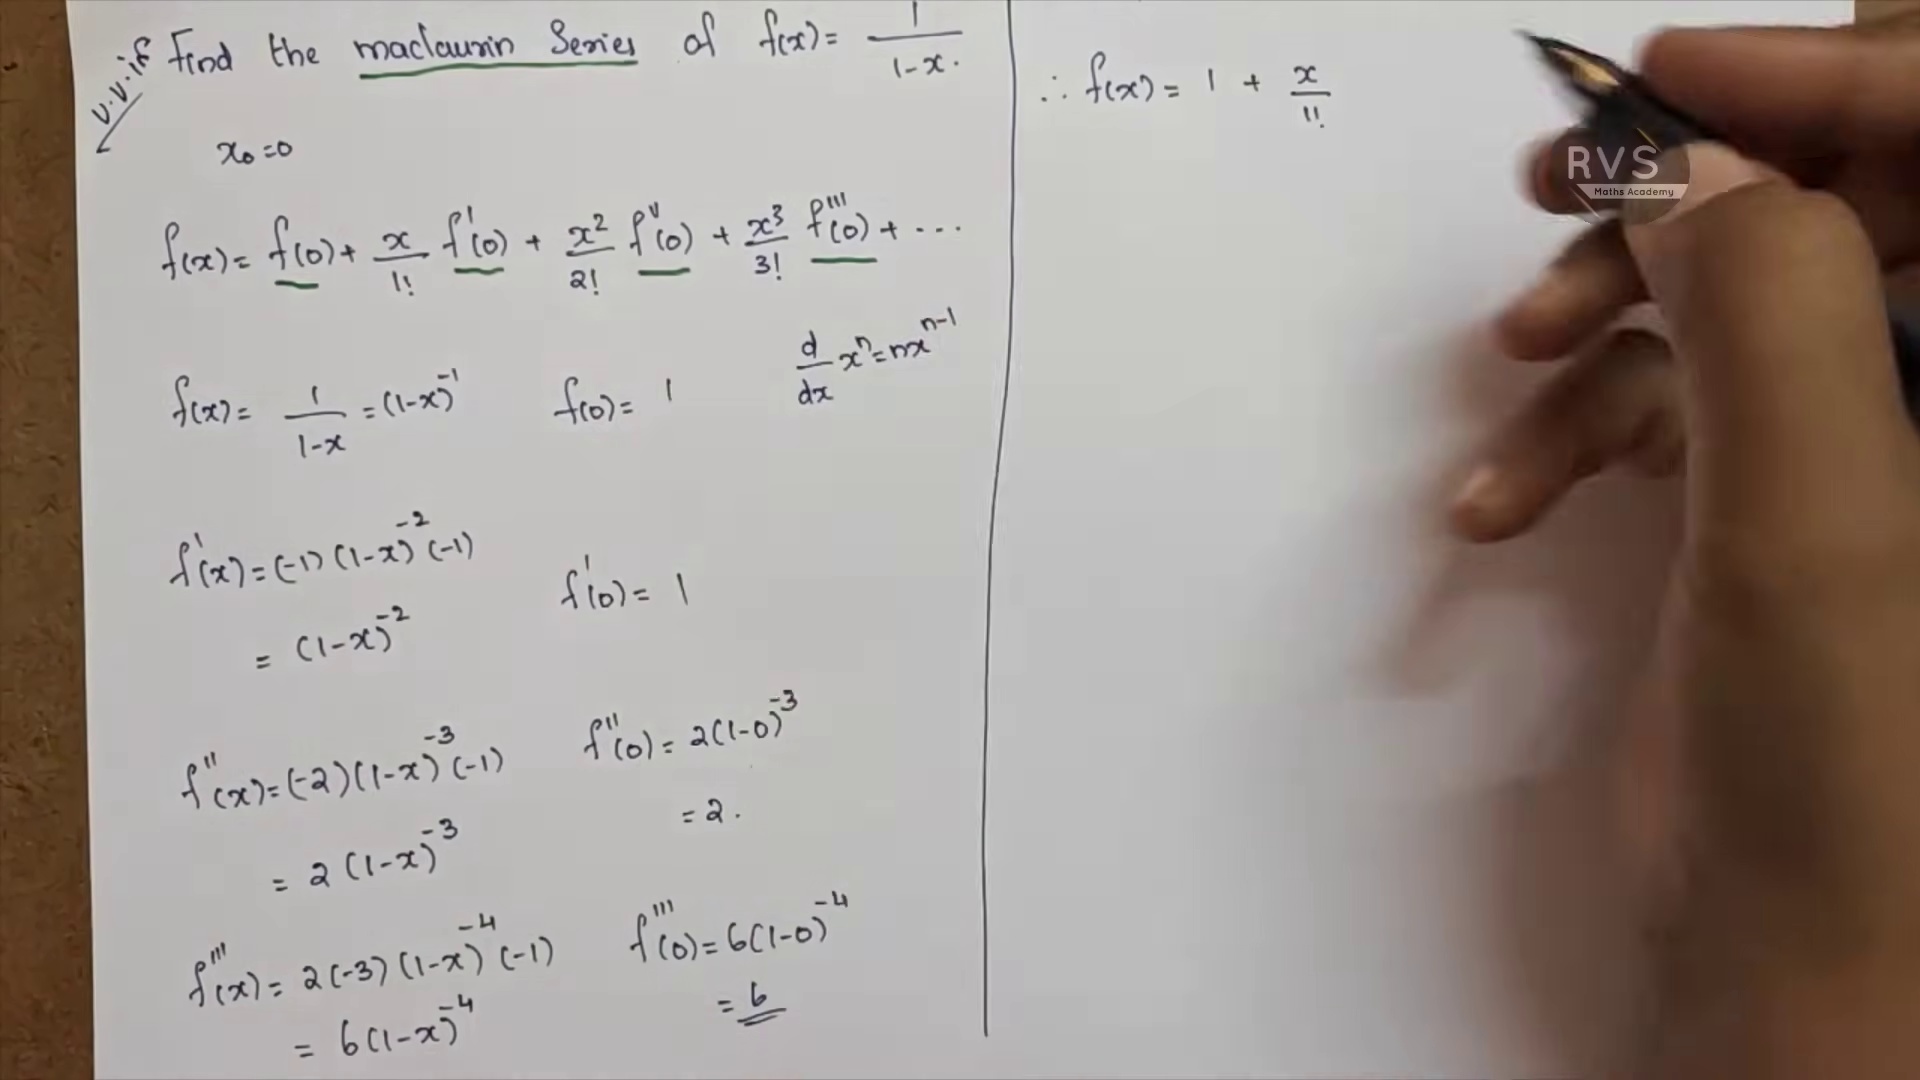 v.v.if Find the maclaurin Series of f(x) = 1/(1-x).
x₀ = 0
f(x) = f(0) + x/1! f'(0) + x²/2! f''(0) + x³/3! f'''(0) + ...
d/dx xⁿ = nxⁿ⁻¹
f(x) = 1/(1-x) = (1-x)⁻¹ f(0) = 1
f'(x) = (-1)(1-x)⁻²(-1)
f'(0) = 1
= (1-x)⁻²
f''(x) = (-2)(1-x)⁻³(-1) f''(0) = 2(1-0)⁻³
= 2.
= 2(1-x)⁻³
f'''(x) = 2(-3)(1-x)⁻⁴(-1) f'''(0) = 6(1-0)⁻⁴
= 6
= 6(1-x)⁻⁴
∴ f(x) = 1 + x/1!
RVS
Maths Academy